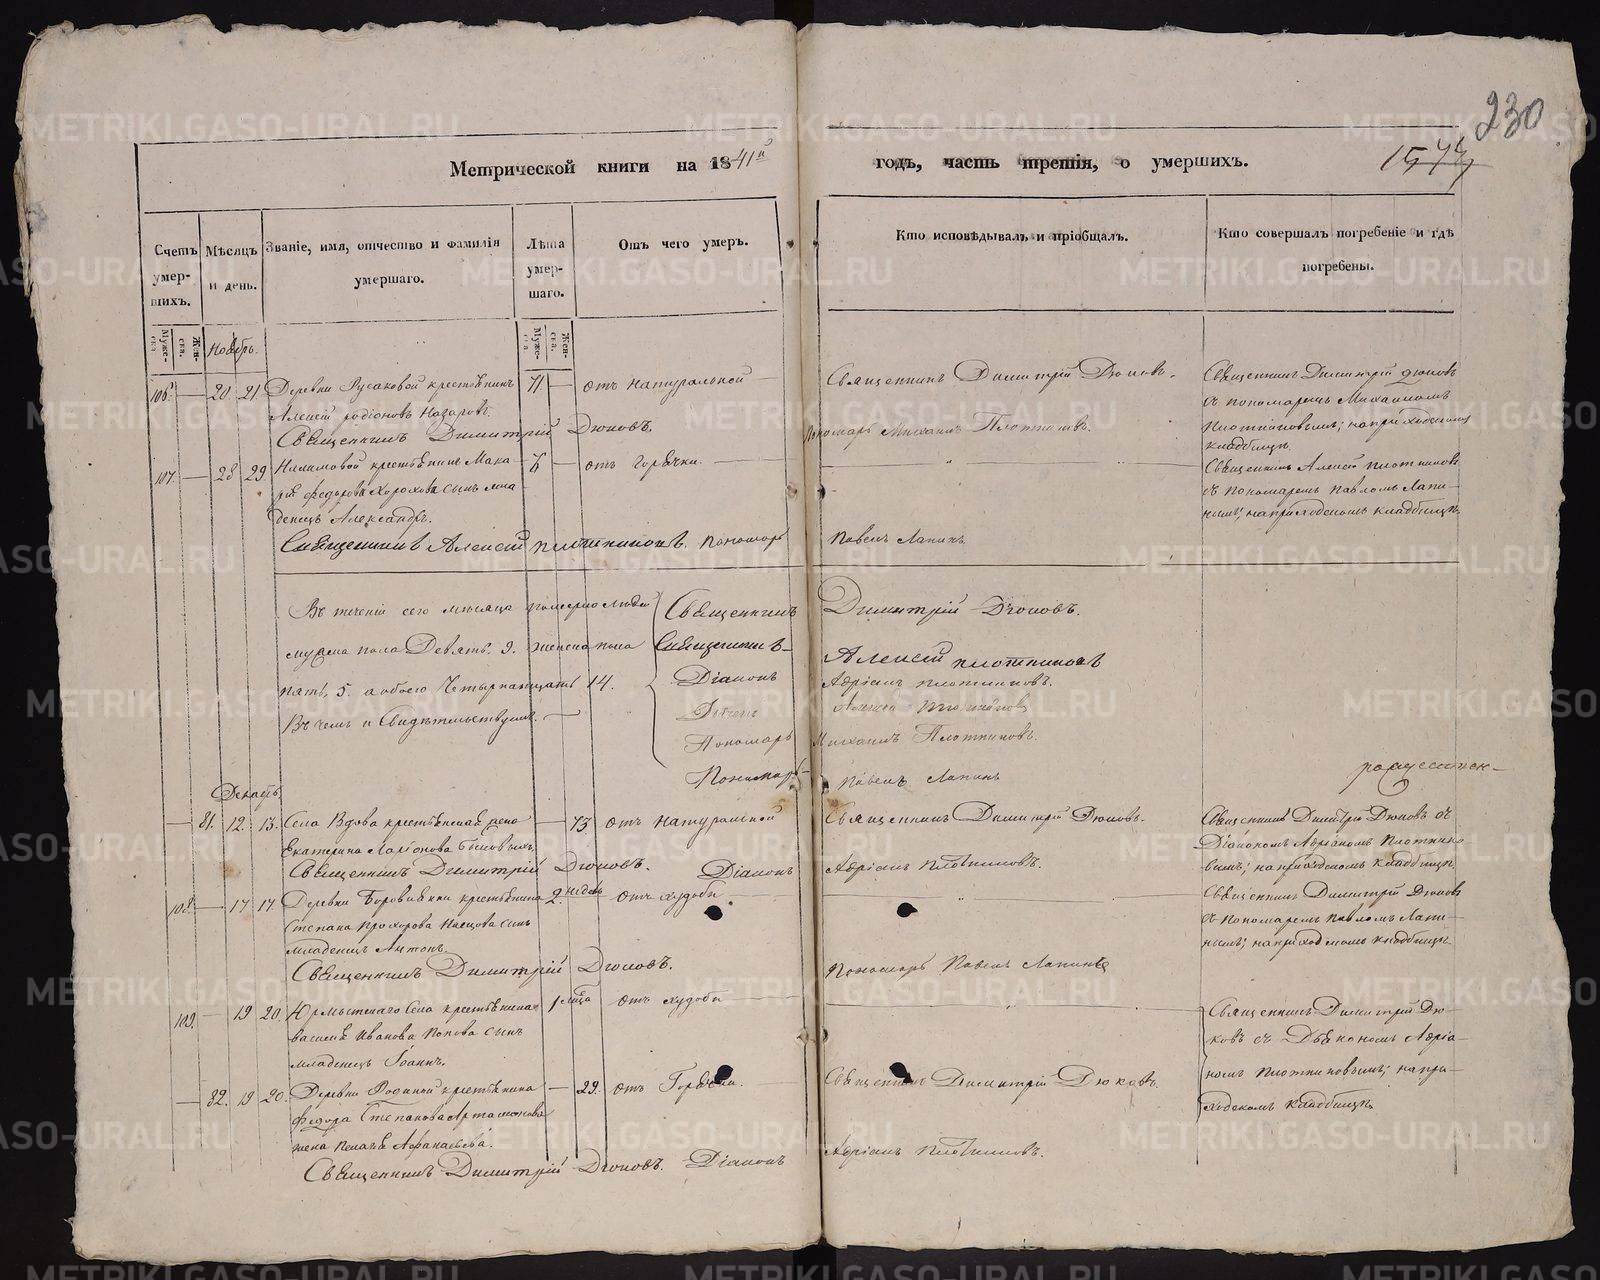 230
Метрической книги на 1841й
годъ, часть третія, о умершихъ.
Счетъ умер-шихъ.
Мѣсяцъ и день.
Званіе, имя, отчество и фамилія умершаго.
Лѣта умер-шаго.
Отъ чего умеръ.
Кто исповѣдывалъ и пріобщалъ.
Кто совершалъ погребеніе и гдѣ погребены.
Муже-ска
Жен-ска.
Муже-ска
Жен-ска.
Ноябрь.
106. 20 21 Деревни Русаковой крестьянинъ 71 отъ натуральной Священникъ Димитрій Дюковъ. Священникъ Димитрій Дюковъ
Алексій Родіоновъ Назаровъ. съ пономаремъ Михаиломъ
Священникъ Димитрій Дюковъ. Пономарь Михаилъ Плотниковъ. Плотниковымъ; на приходскомъ
кладбищѣ.
107. 28 29. крестьянина Мака- отъ горячки. Священникъ Алексій Плотниковъ
рія Федорова сынъ мла- съ пономаремъ Павломъ Лапи-
денецъ Александръ. нымъ; на приходскомъ кладбищѣ.
Священникъ Алексій Плотниковъ. Пономарь Павелъ Лапинъ.
Въ теченіи сего мѣсяца померло людей Священникъ Димитрій Дюковъ.
мужска пола Девять. 9. женска пола Священникъ Алексій Плотниковъ
пять, 5. а обоего Четырнадцать 14. Діаконъ Адріанъ Плотниковъ.
Въ чемъ и Свидѣтельствуемъ. Алексій Плотниковъ
Пономарь Михаилъ Плотниковъ.
Пономарь Павелъ Лапинъ
Декабрь
81. 12. 13. Села Вдова крестьянская жена 73 отъ натуральной Священникъ Димитрій Дюковъ. Священникъ Димитрій Дюковъ съ
Екатерина Ларіонова Діакономъ Адріаномъ Плотнико-
Священникъ Димитрій Дюковъ. Діаконъ Адріанъ Плотниковъ. вымъ; на приходскомъ кладбищѣ.
108. 17 17. Деревни крестьянина 2. недѣль отъ худобы Священникъ Димитрій Дюковъ
Степана Прохорова сынъ съ Пономаремъ Павломъ Лапи-
младенецъ Антонъ. нымъ; на приходскомъ кладбищѣ.
Священникъ Димитрій Дюковъ. Пономарь Павелъ Лапинъ
109. 19 20. Юрмытскаго Села крестьянина отъ худобы Священникъ Димитрій Дю-
Василія Иванова Попова сынъ ковъ съ Діакономъ Адріа-
младенецъ Іоаннъ. номъ Плотниковымъ; на при-
82. 19 20. Деревни Родиной крестьянина 29. отъ Горячки. Священникъ Димитрій Дюковъ. ходскомъ кладбищѣ.
Федора Степанова Артамонова
жена Афанасьева.
Священникъ Димитрій Дюковъ. Діаконъ Адріанъ Плотниковъ.
METRIKI.GASO-URAL.RU